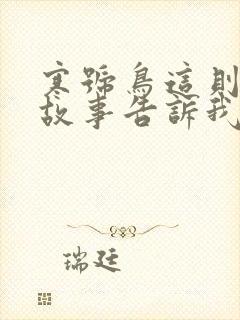 寒號鳥這則
故事告訴我
瑞廷